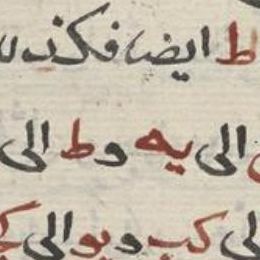 ط ايضا فكذلك
الى يه و ط الى
الى كب و يو الى